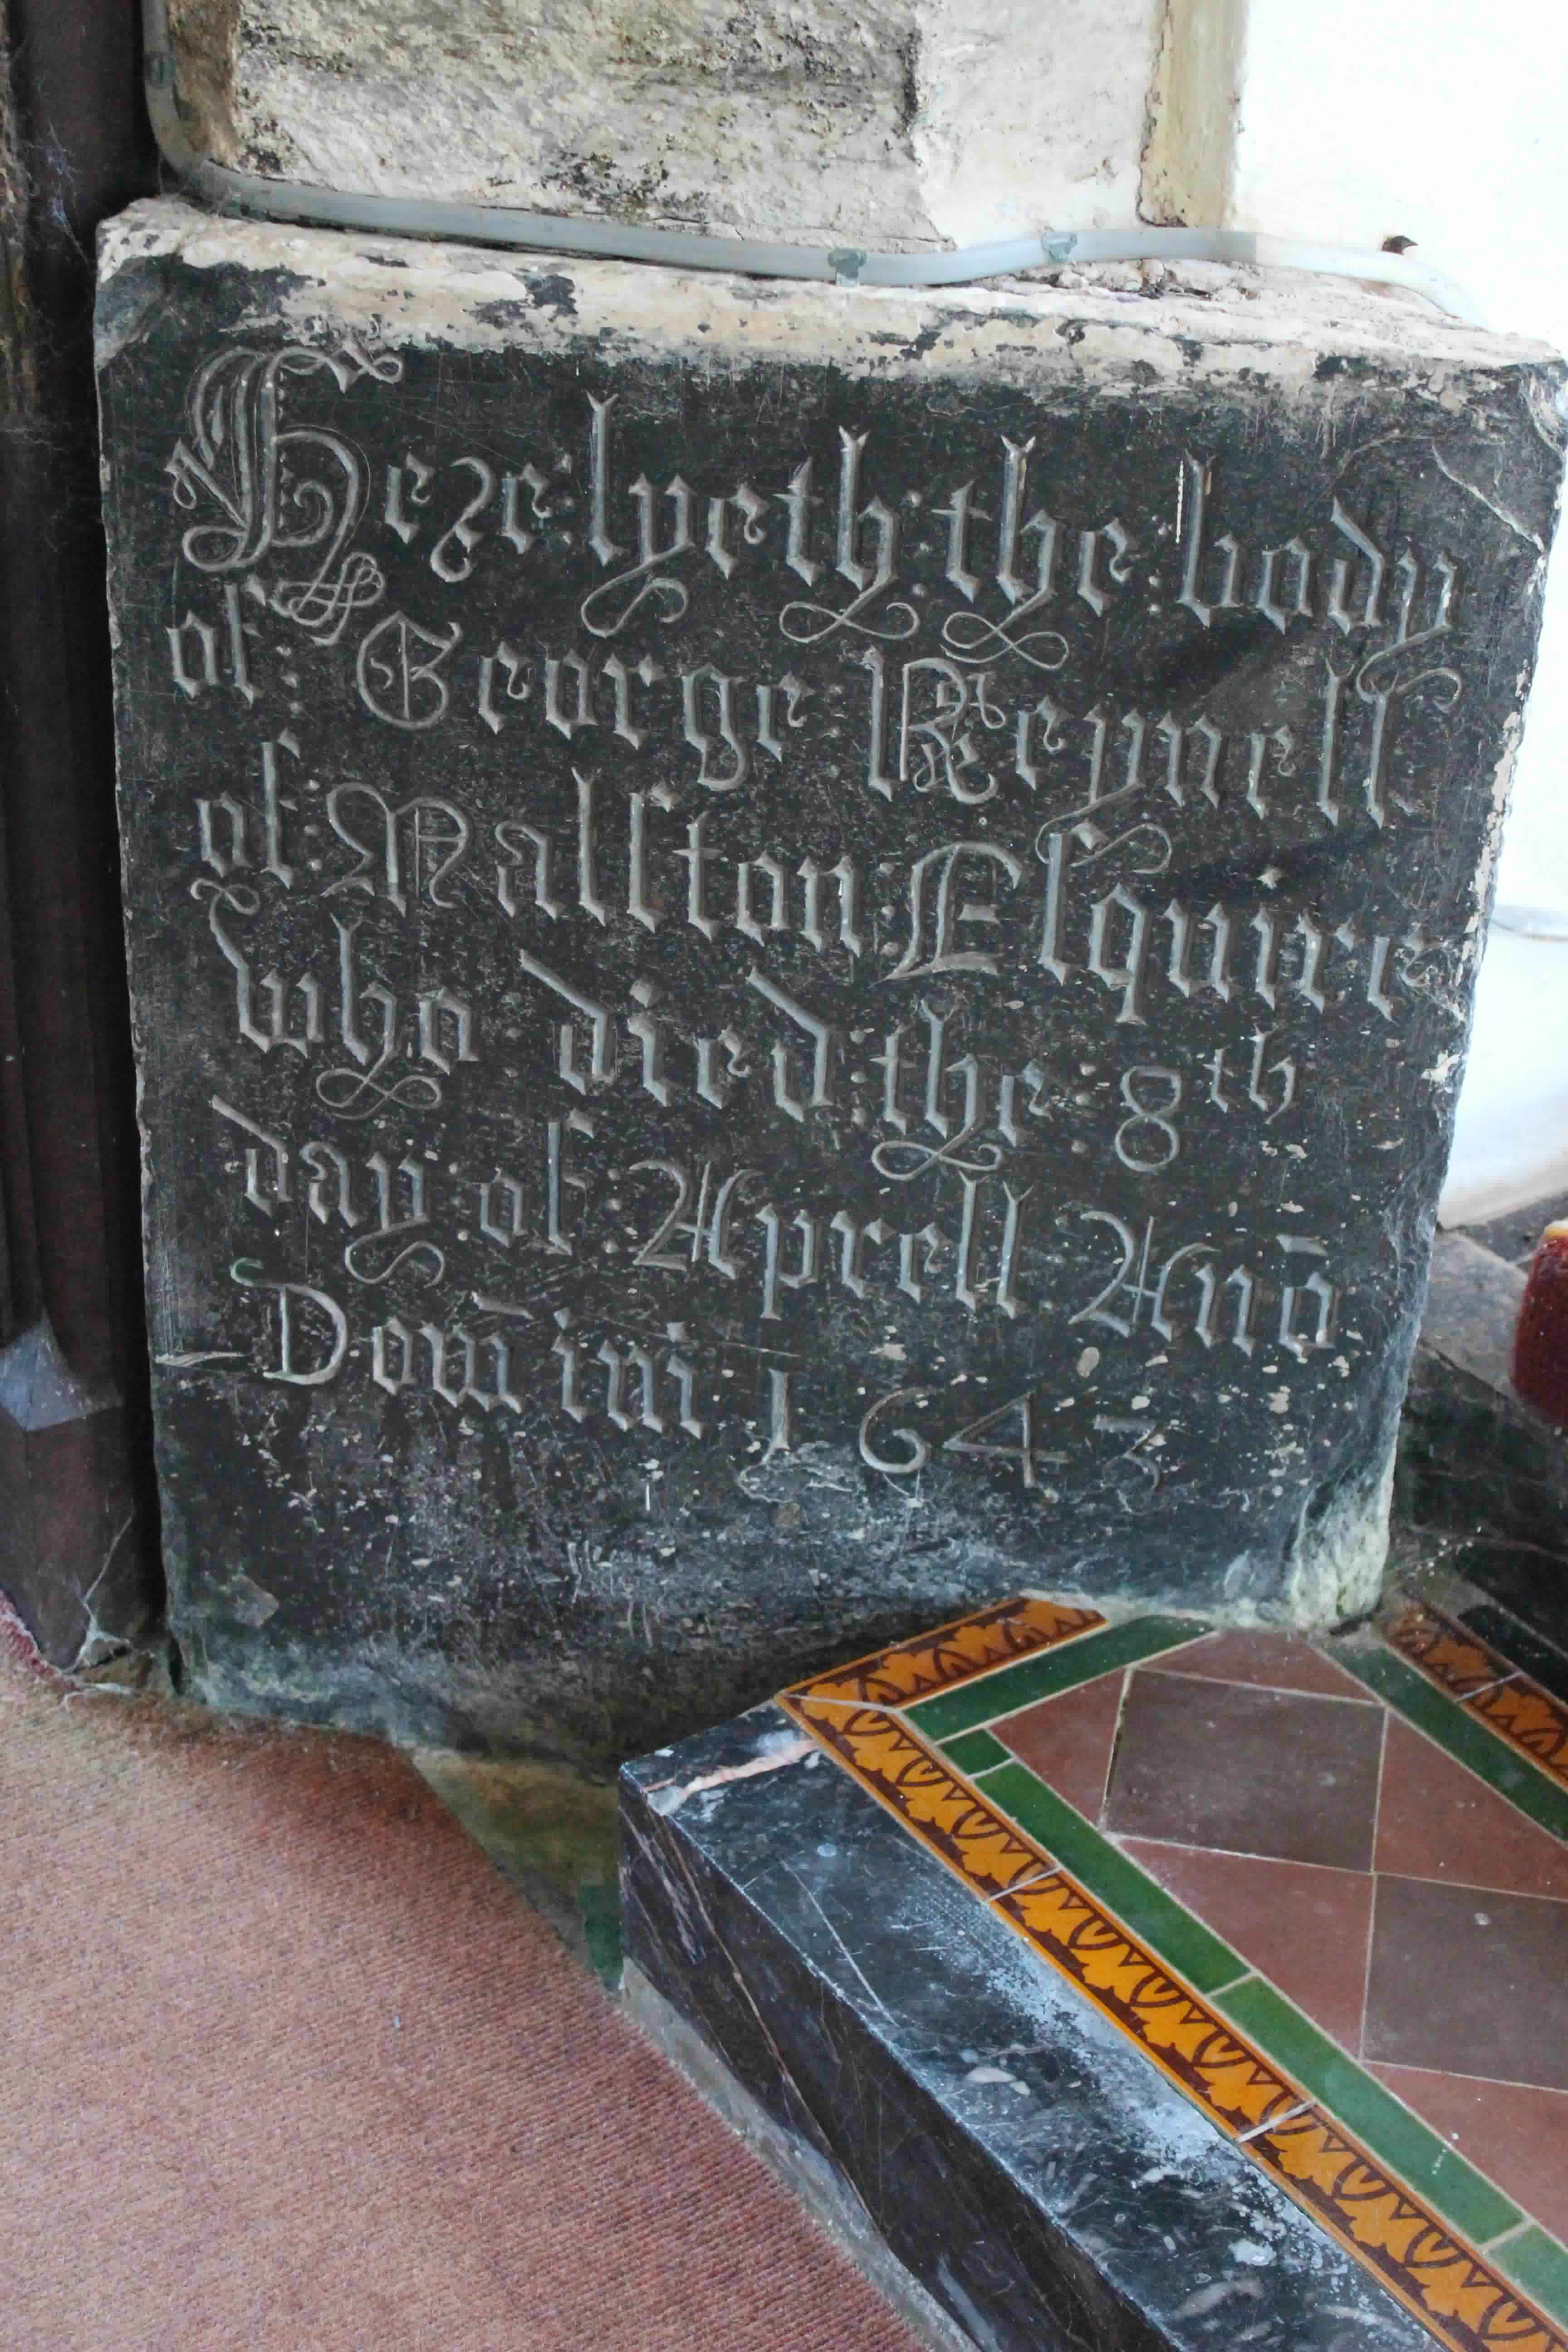 Here : lyeth : the : body
of : George Reynell
of : Malſton : Eſquire
who : died : the : 8th
day : of : Aprell Anō
Dom̄ini 1643